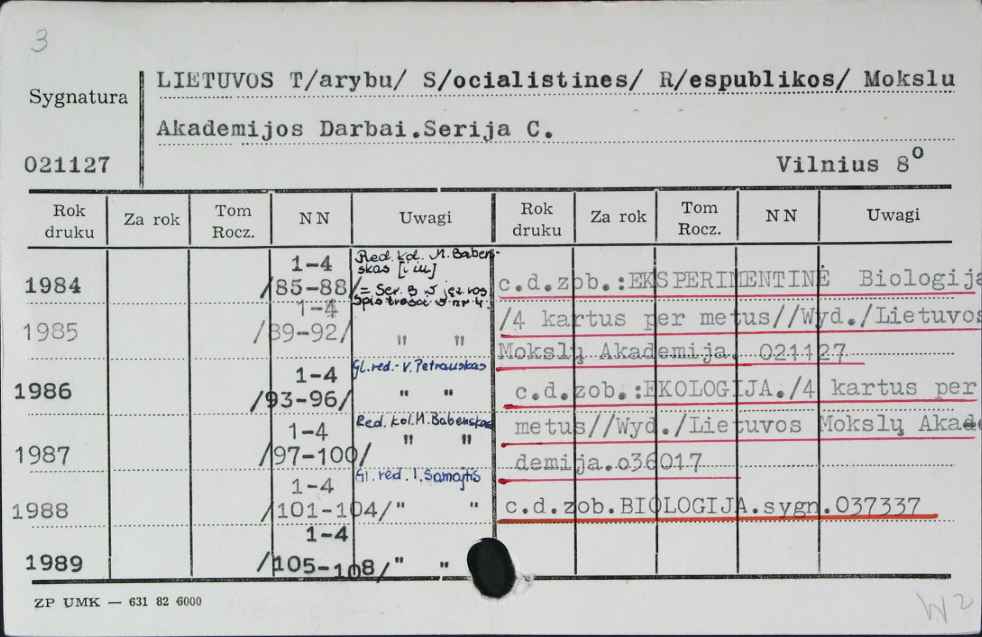 3
Sygnatura
LIETUVOS T/arybu/ S/ocialistines/ R/espublikos/ Mokslu
Akademijos Darbai.Serija C.
021127
Vilnius 8o
Rok druku Za rok Tom Rocz. N N Uwagi Rok druku Za rok Tom Rocz. N N Uwagi
1984 1-4 /85-88/ Red. kol. M. Baben-
skas [i in.]
= Ser. B
nr 4.
1985 1-4 /89-92/ " "
1986 1-4 /93-96/ Gl. red. - V. Petrauskas " "
1987 1-4 /97-100/ Red. kol. M. Babenskas " "
1988 1-4 /101-104/ Gl. red. I. Samajtis " "
1989 1-4 /105-108/ " "
c.d.zob.:EKSPERIMENTINĖ Biologija
/4 kartus per metus//Wyd./Lietuvos
Mokslų Akademija. 021127
c.d.zob.:EKOLOGIJA./4 kartus per
metus//Wyd./Lietuvos Mokslų Akade
demija.036017
c.d.zob.BIOLOGIJA.sygn.037337
ZP UMK — 631 82 6000
W2